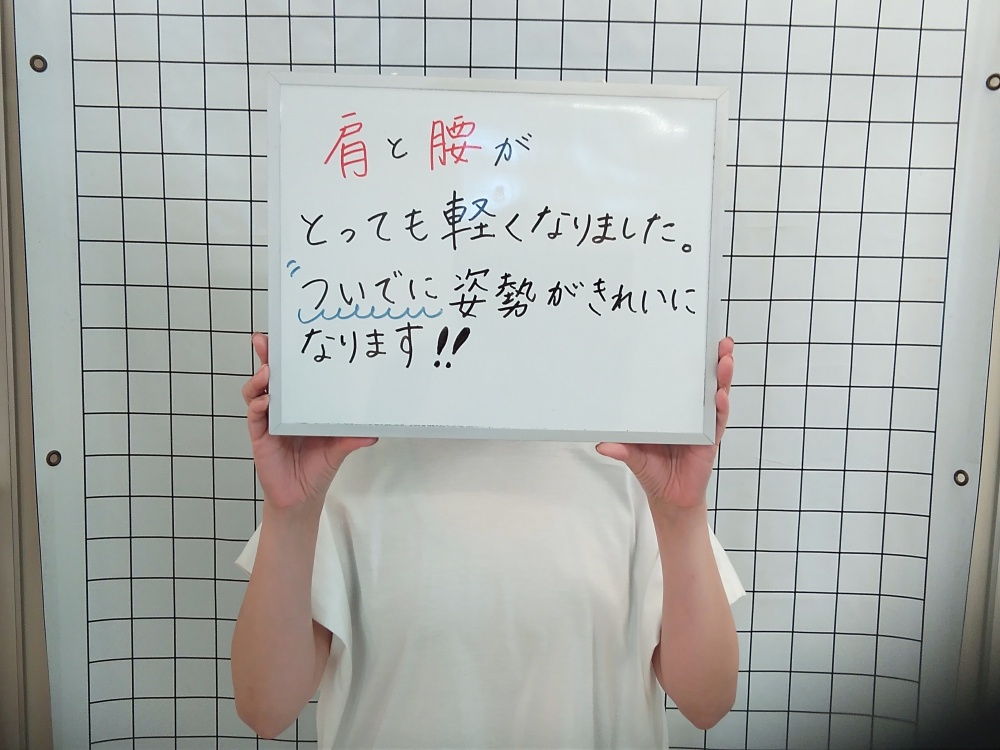 肩と腰が
とっても軽くなりました。
ついでに姿勢がきれいに
なります!!